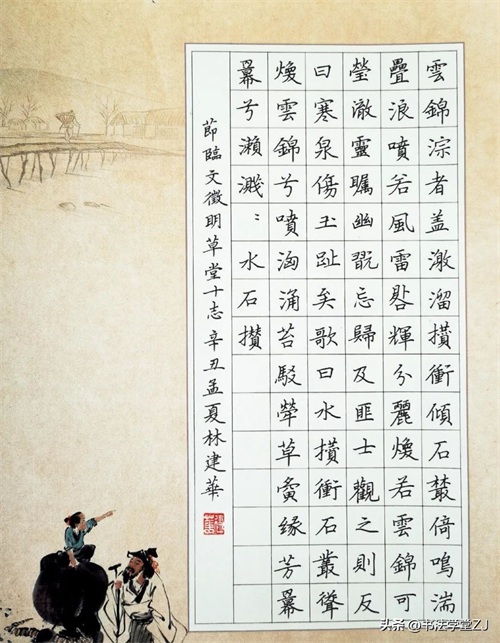 雲錦淙者盖激溜攢衝傾石藂倚鳴湍
疊浪噴若風雷輝分麗煥若雲錦可
瑩澈靈矚幽翫忘歸及匪士觀之則反
曰寒泉傷玉趾矣歌曰水攢衝石叢聳
煥雲錦兮噴洶涌苔駁犖草夤缘芳羃
羃兮瀨濺〻水石攢
節臨文徵明草堂十志辛丑孟夏林建華
头条@书法学堂ZJ